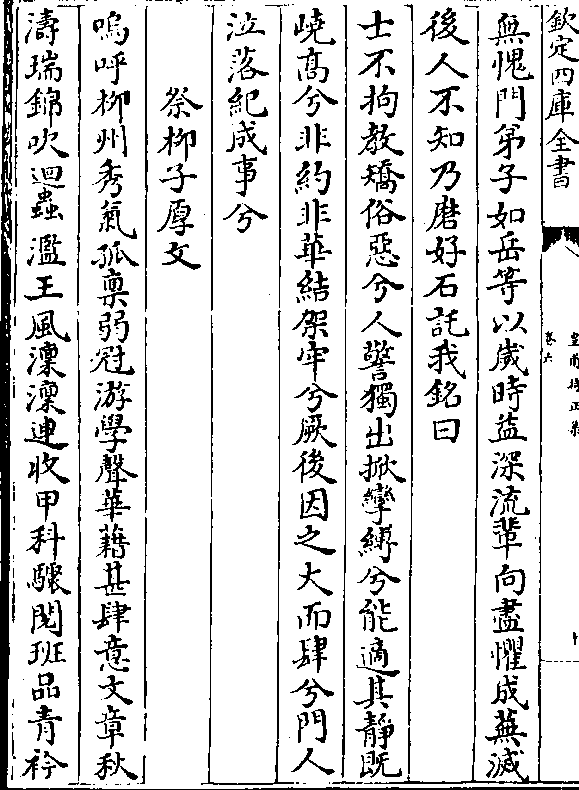 欽定四庫全書
皇甫持正集
卷六
十
無愧門弟子如岳等以歲時益深流輩向盡懼成蕪滅
後人不知乃磨好石託我銘曰
士不拘教矯俗惡兮人警獨出掀攣縛兮能適其靜既
峣高兮非約非華結架牢兮厥後因之大而肆兮門人
泣落紀成事兮
祭柳子厚文
嗚呼柳州秀氣孤稟弱冠游學聲華藉甚肆意文章秋
濤瑞錦吹迴蟲濫王風凜凜連收甲科驟閱班品青衿